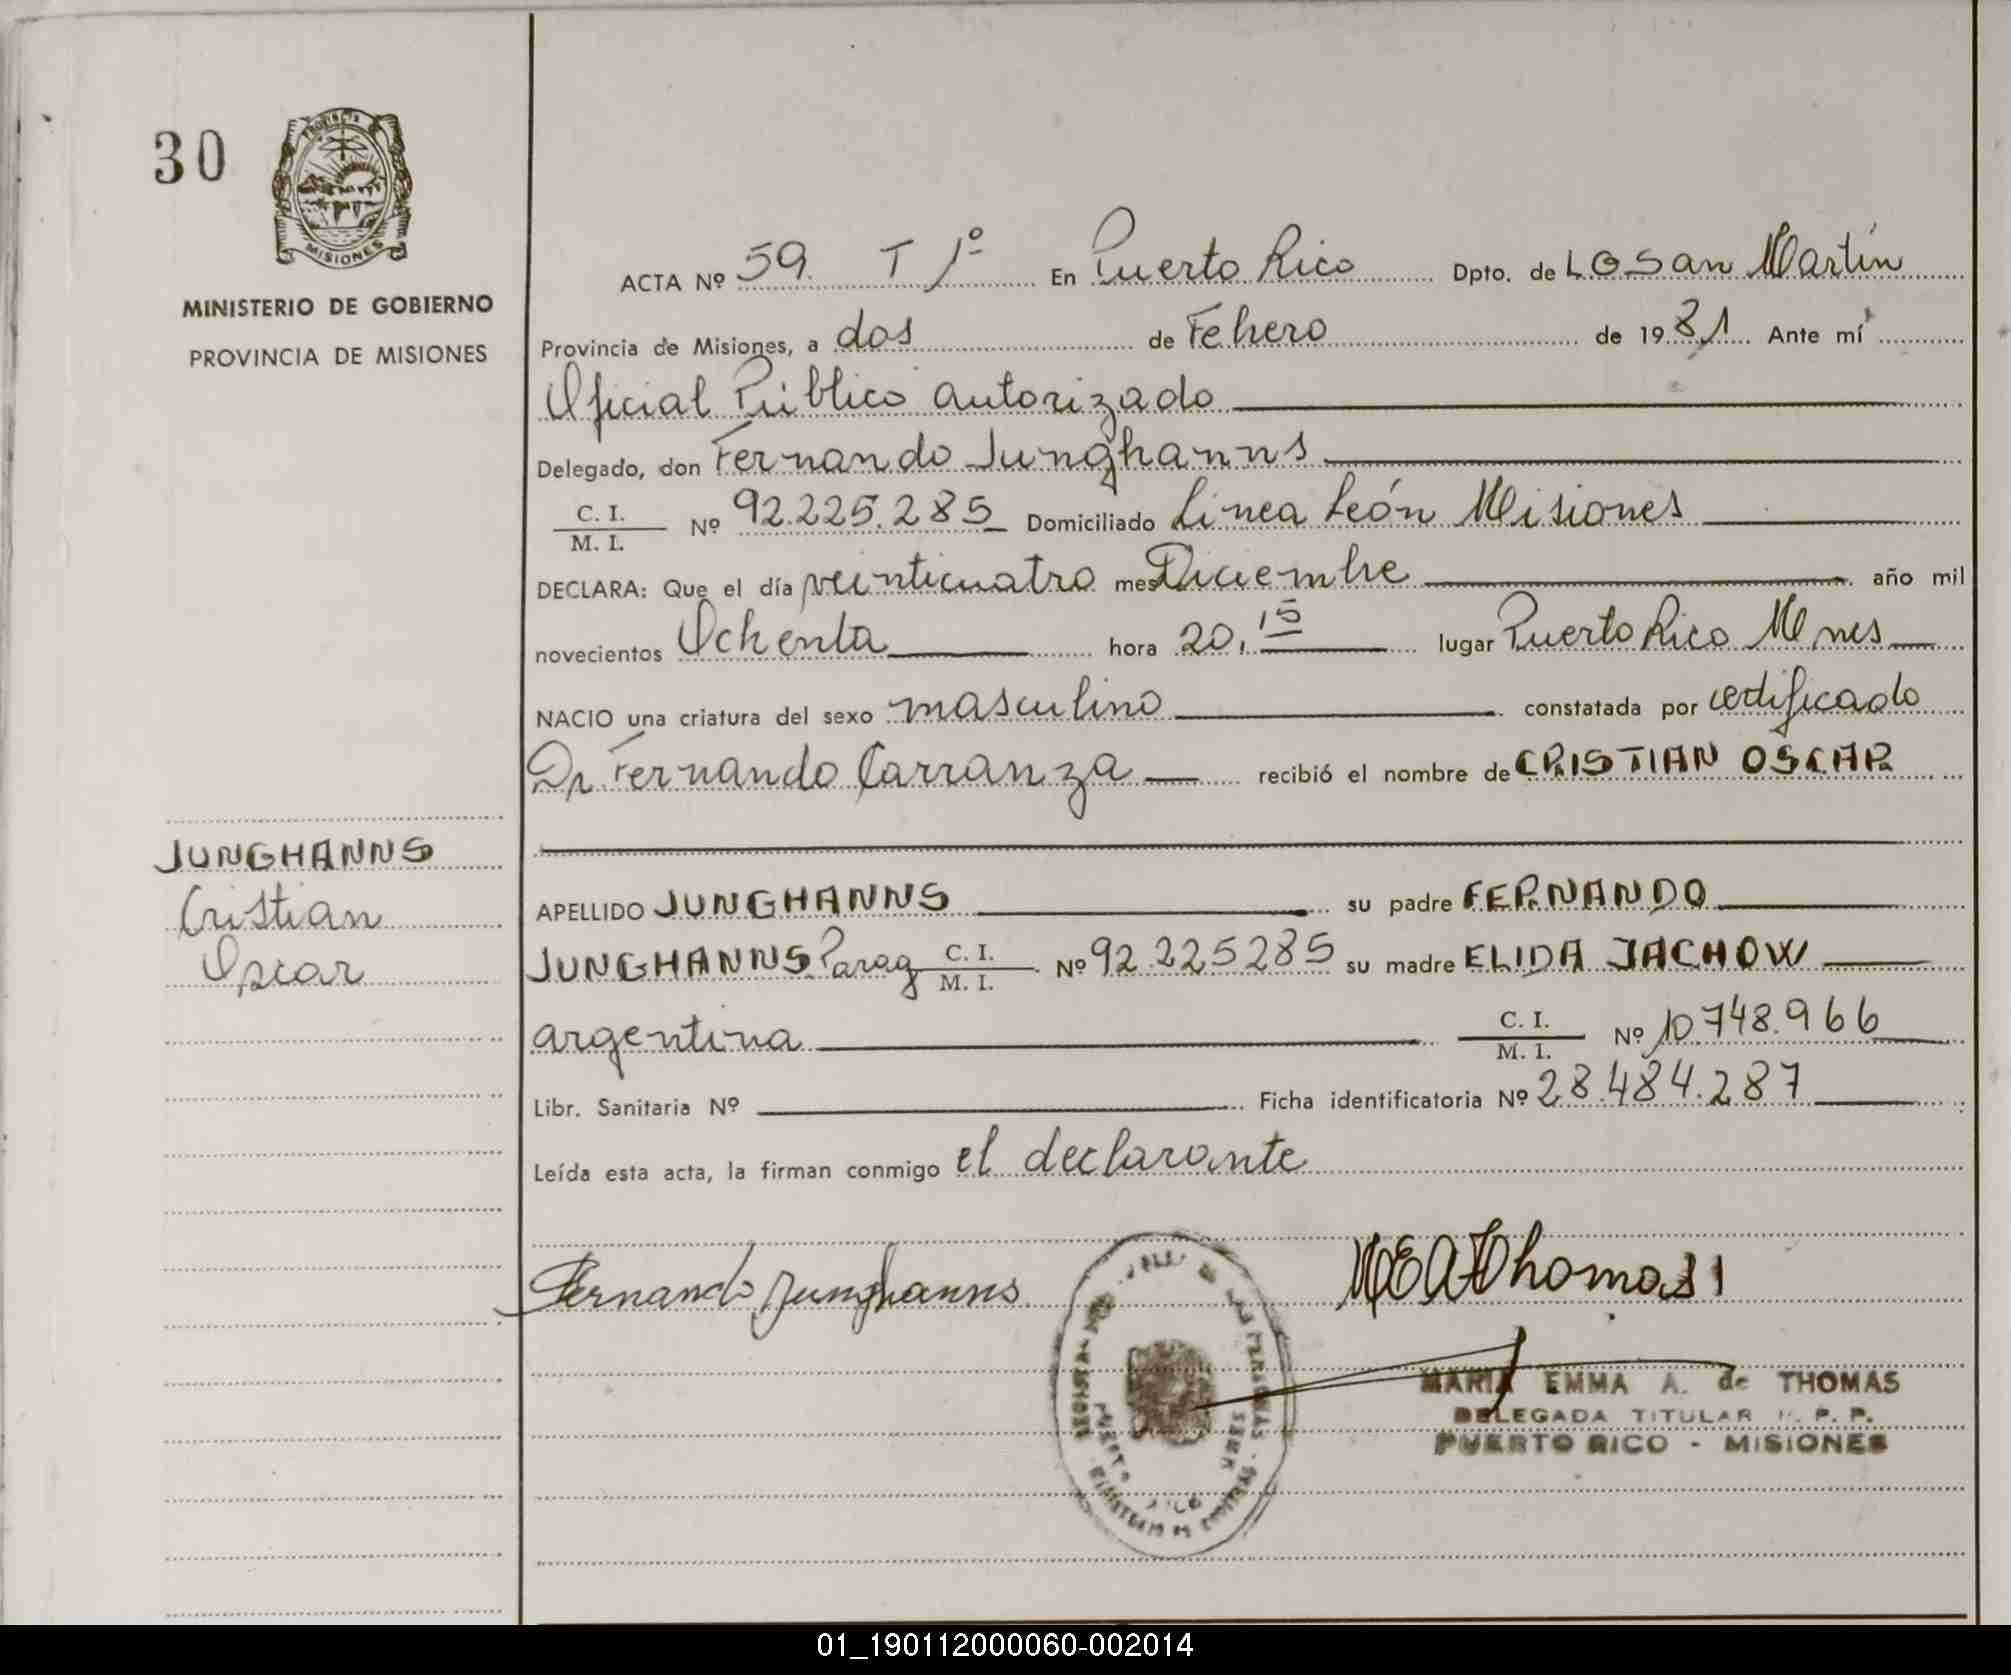 30
PROVINCIA
MISIONES
MINISTERIO DE GOBIERNO
PROVINCIA DE MISIONES
ACTA Nº 59. T 1º En Puerto Rico Dpto. de L G San Martín
Provincia de Misiones, a dos de Febrero de 1981 Ante mí
Oficial Público autorizado
Delegado, don Fernando Junghanns
C. I.
M. I. Nº 92.225.285 Domiciliado Linea León Misiones
DECLARA: Que el día veinticuatro mes Diciembre año mil
novecientos Ochenta hora 20,15 lugar Puerto Rico Mnes
NACIO una criatura del sexo masculino constatada por certificado
Dr. Fernando Carranza recibió el nombre de CRISTIAN OSCAR
JUNGHANNS
Cristian
Oscar
APELLIDO JUNGHANNS su padre FERNANDO
JUNGHANNS Parag C. I.
M. I. Nº 92.225285 su madre ELIDA JACHOW
argentina C. I.
M. I. Nº 10.748.966
Libr. Sanitaria Nº Ficha identificatoria Nº 28.484.287
Leída esta acta, la firman conmigo el declarante
Fernando Junghanns
MEA Thomas
MARIA EMMA A. de THOMAS
DELEGADA TITULAR R. P. P.
PUERTO RICO - MISIONES
01_190112000060-002014